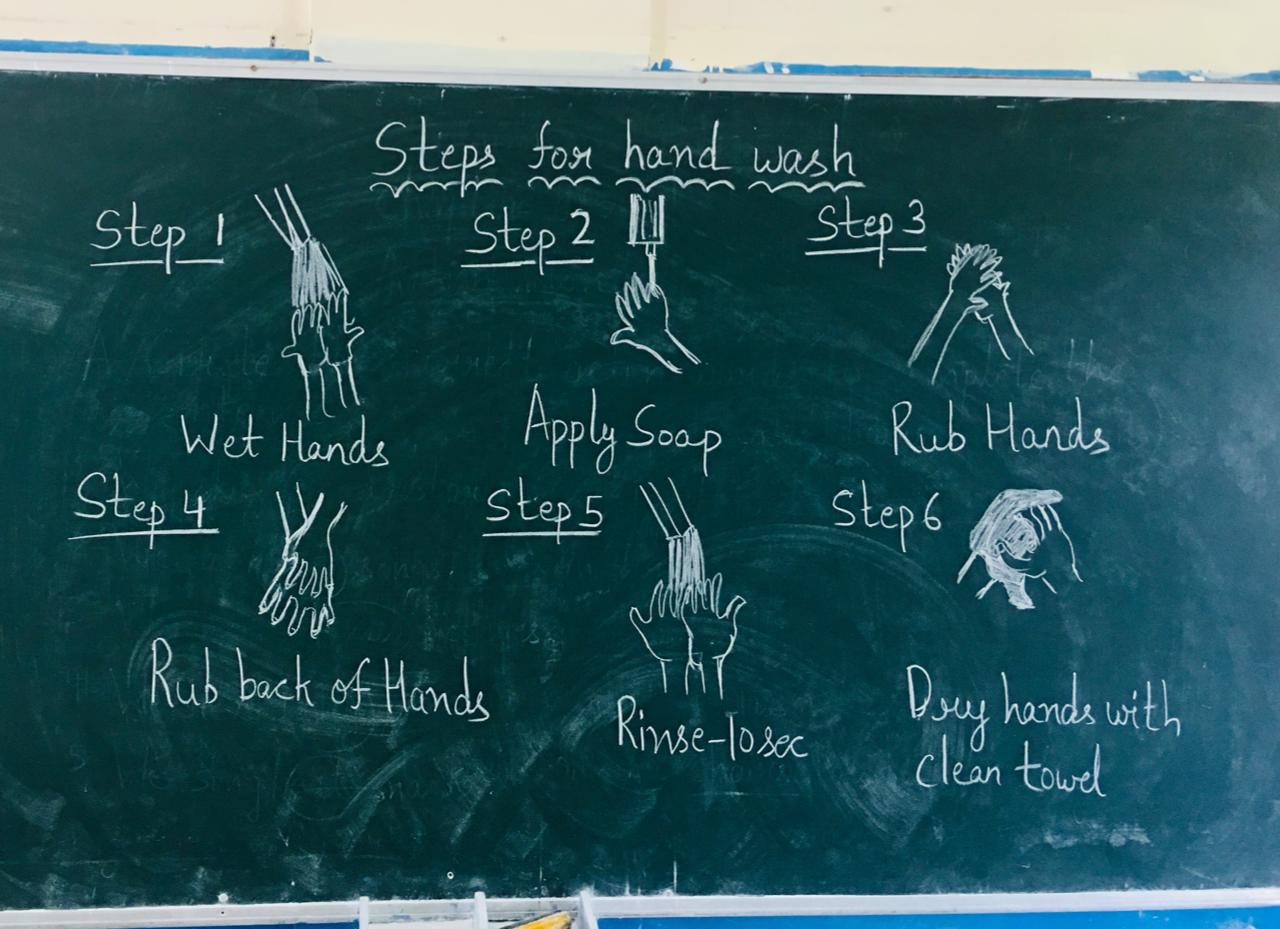 Steps for hand wash
Step 1
Step 2
Step 3
Wet Hands
Apply Soap
Rub Hands
Step 4
Step 5
Step 6
Rub back of Hands
Rinse-10sec
Dry hands with
clean towel